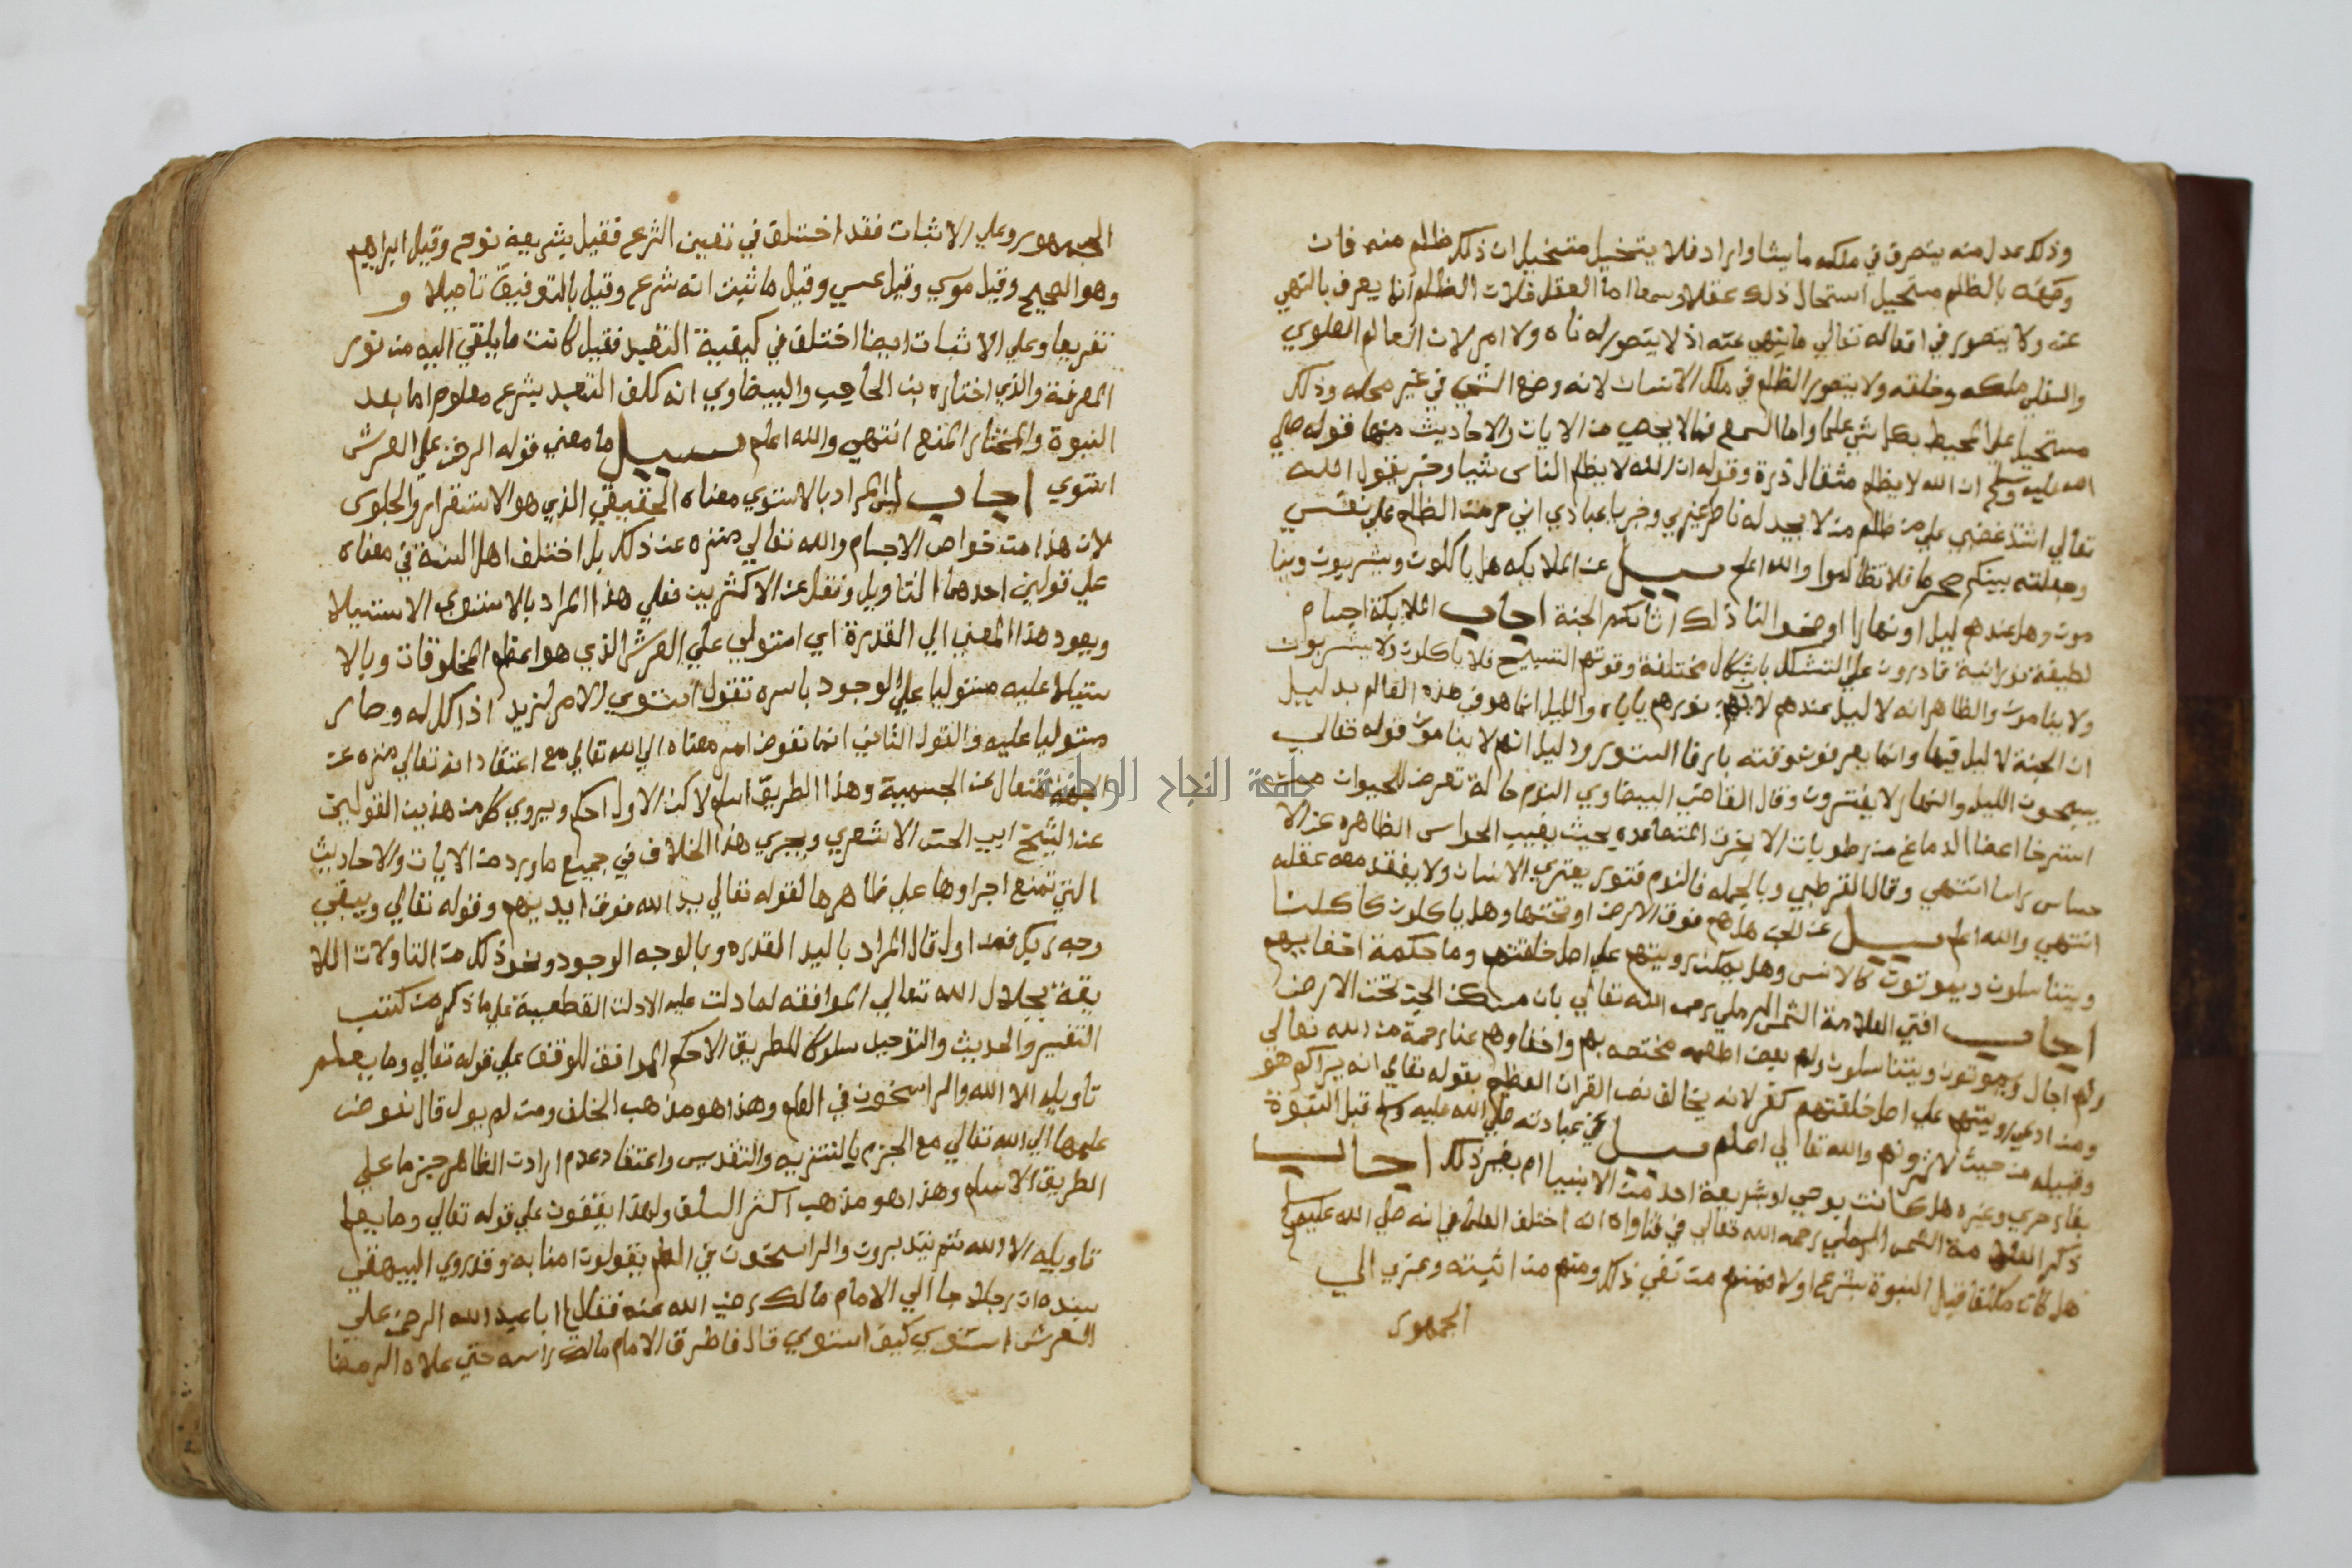 وذلك عدل منه يتصرف في ملكه ما يشا واراد فلا يتخيل متخيل ان ذلك ظلم منه فان
وصفه بالظلم مستحيل استحال ذلك عقلا وسمعا اما العقل فلان الظلم انما يعرف بالنهي
عنه ولا يتصور في افعاله تعالي ما ينهي عنه اذ لا يتصور له ناه ولا امر لان العالم العلوي
والسفلي ملكه وخلقه ولا يتصور الظلم في ملك الانسان لانه وضع الشي في غير محله وذلك
مستحيل علي المحيط بكل شي علما واما السمع فما لا يحصي من الايات والاحاديث منها قوله صلي
الله عليه وسلم ان الله لا يظلم مثقال ذرة وقوله ان الله لا يظلم الناس شيا وخبر يقول الله
تعالي اشتد غضبي علي من ظلم من لا يجد له ناصر غيري وخبر يا عبادي اني حرمت الظلم علي نفسي
وجعلته بينكم محرما فلا تظالموا والله اعلم سيل عن الملايكه هل ياكلون ويشربون وينا
مون وهل عندهم ليل او نهارا اوضحوا لنا ذلك اثابكم الجنة اجاب الملايكة اجسام
لطيفة نورانية قادرون علي التشكل باشكال مختلفة وقوتهم التسبيح فلا ياكلون ولا يشربون
ولا ينامون والظاهر انه لا ليل عندهم لان نورهم ياباه والليل انما هو في هذه العالم بدليل
ان الجنة لا ليل فيها وانما يعرفون وقته بارخا الستور ودليل انهم لا ينامون قوله تعالي
يسبحون الليل والنهار لا يفترون وقال القاضي البيضاوي النوم حالة تعرض للحيوان من
استرخا اعضا الدماغ من رطوبات الابخرت المتصاعده بحيث يغيب الحواس الظاهره عن الا
حساس راسا انتهي وقال القرطبي وبالجمله فالنوم فتور يعتري الانسان ولا يفقد معه عقله
انتهي والله اعلم سيل عن الجن هل هم فوق الارض او تحتها وهل ياكلون كاكلنا
ويتناسلون ويموتون كالانس وهل يمكن رويتهم علي اصل خلقتهم وما حكمة اخفايهم
اجاب افتي العلامة الشمس الرملي رحمه الله تعالي بان مسكن الجن تحت الارض
ولهم اجال ويموتون ويتناسلون ولهم بعض اطعمه مختصه بهم واخفاوهم عنا رحمة من الله تعالي
ومن ادعي رويتهم علي اصل خلقتهم كفر لانه يخالف نص القران العظيم بقوله تعالي انه يراكم هو
وقبيله من حيث لا ترونهم والله تعالي اعلم سيل عن عبادته صلي الله عليه وسلم قبل النبوة
بغار حري وغيره هل كانت بوحي او شريعة احد من الانبيا ام بغير ذلك اجاب
ذكر العلامة الشمس الرملي رحمه الله تعالي في فتاواه انه اختلف العلما في انه صلي الله عليه وسلم
هل كان مكلفا قبل النبوة بشرع او لا فمنهم من نفي ذلك ومنهم من اثبته وعزي الي
الجمهور
الجمهور وعلي الاثبات فقد اختلف في تعيين الشرع فقيل بشريعة نوح وقيل ابراهيم
وهو الصحيح وقيل موسي وقيل عيسي وقيل ما ثبت انه شرع وقيل بالتوقيف تاصيلا و
تفريعا وعلي الاثبات ايضا اختلف في كيفية التعبد فقيل كانت ما يلقي اليه من نور
المعرفة والذي اختاره بن الحاجب والبيضاوي انه كلف التعبد بشرع معلوم اما بعد
النبوة والمختار المنع انتهي والله اعلم سيل ما معني قوله الرحمن علي العرش
استوي اجاب ليس المراد بالاستوي معناه الحقيقي الذي هو الاستقرار والجلوس
لان هذا من خواص الاجسام والله تعالي منزه عن ذلك بل اختلف اهل السنة في معناه
علي قولين احدهما التاويل ونقل عن الاكثرين فعلي هذا المراد بالاستوي الاستيلا
ويعود هذا المعني الي القدرة اي استولي علي العرش الذي هو اعظم المخلوقات وبالا
ستيلا عليه مستوليا علي الوجود باسره تقول استوي الامر لزيد اذا كمل له وصار
مستوليا عليه والقول الثاني انما نفوض امر معناه الي الله تعالي مع اعتقاد انه تعالي منزه عن
الجهة متعال عن الجسمية وهذا الطريق اسلم لاكن الاول احكم ويروي كل من هذين القولين
عن الشيخ ابي الحسن الاشعري ويجري هذا الخلاف في جميع ما ورد من الايات والاحاديث
التي تمنع اجراوها علي ظاهرها لقوله تعالي يد الله فوق ايديهم وقوله تعالي ويبقي
وجه ربك فمن اول قال المراد باليد القدره وبالوجه الوجود ونحو ذلك من التاولات اللا
يقة بجلال الله تعالي الموافقه لما دلت عليه الادلت القطعية علي ما ذكر من كتب
التفسير والحديث والتوحيد سلوكا للطريق الاحكم الموافق للوقف علي قوله تعالي وما يعلم
تاويله الا الله والراسخون في العلم وهذا هو مذهب الخلف ومن لم يول قال نفوض
علمها الي الله تعالي مع الجزم بالتنزيه والتقديس واعتقاد عدم ارادت الظاهر جزما علي
الطريق الاسلم وهذا هو مذهب اكثر السلف ولهذا يقفون علي قوله تعالي وما يعلم
تاويله الا الله ثم يبتديون والراسخون في العلم يقولون امنا به وقد روي البيهقي
بسنده ان رجلا جا الي الامام مالك رضي الله عنه فقال يا ابا عبد الله الرحمن علي
العرش استوي كيف استوي قال فاطرق الامام مالك راسه حتي علاه الرحضا
جامعة النجاح الوطنية